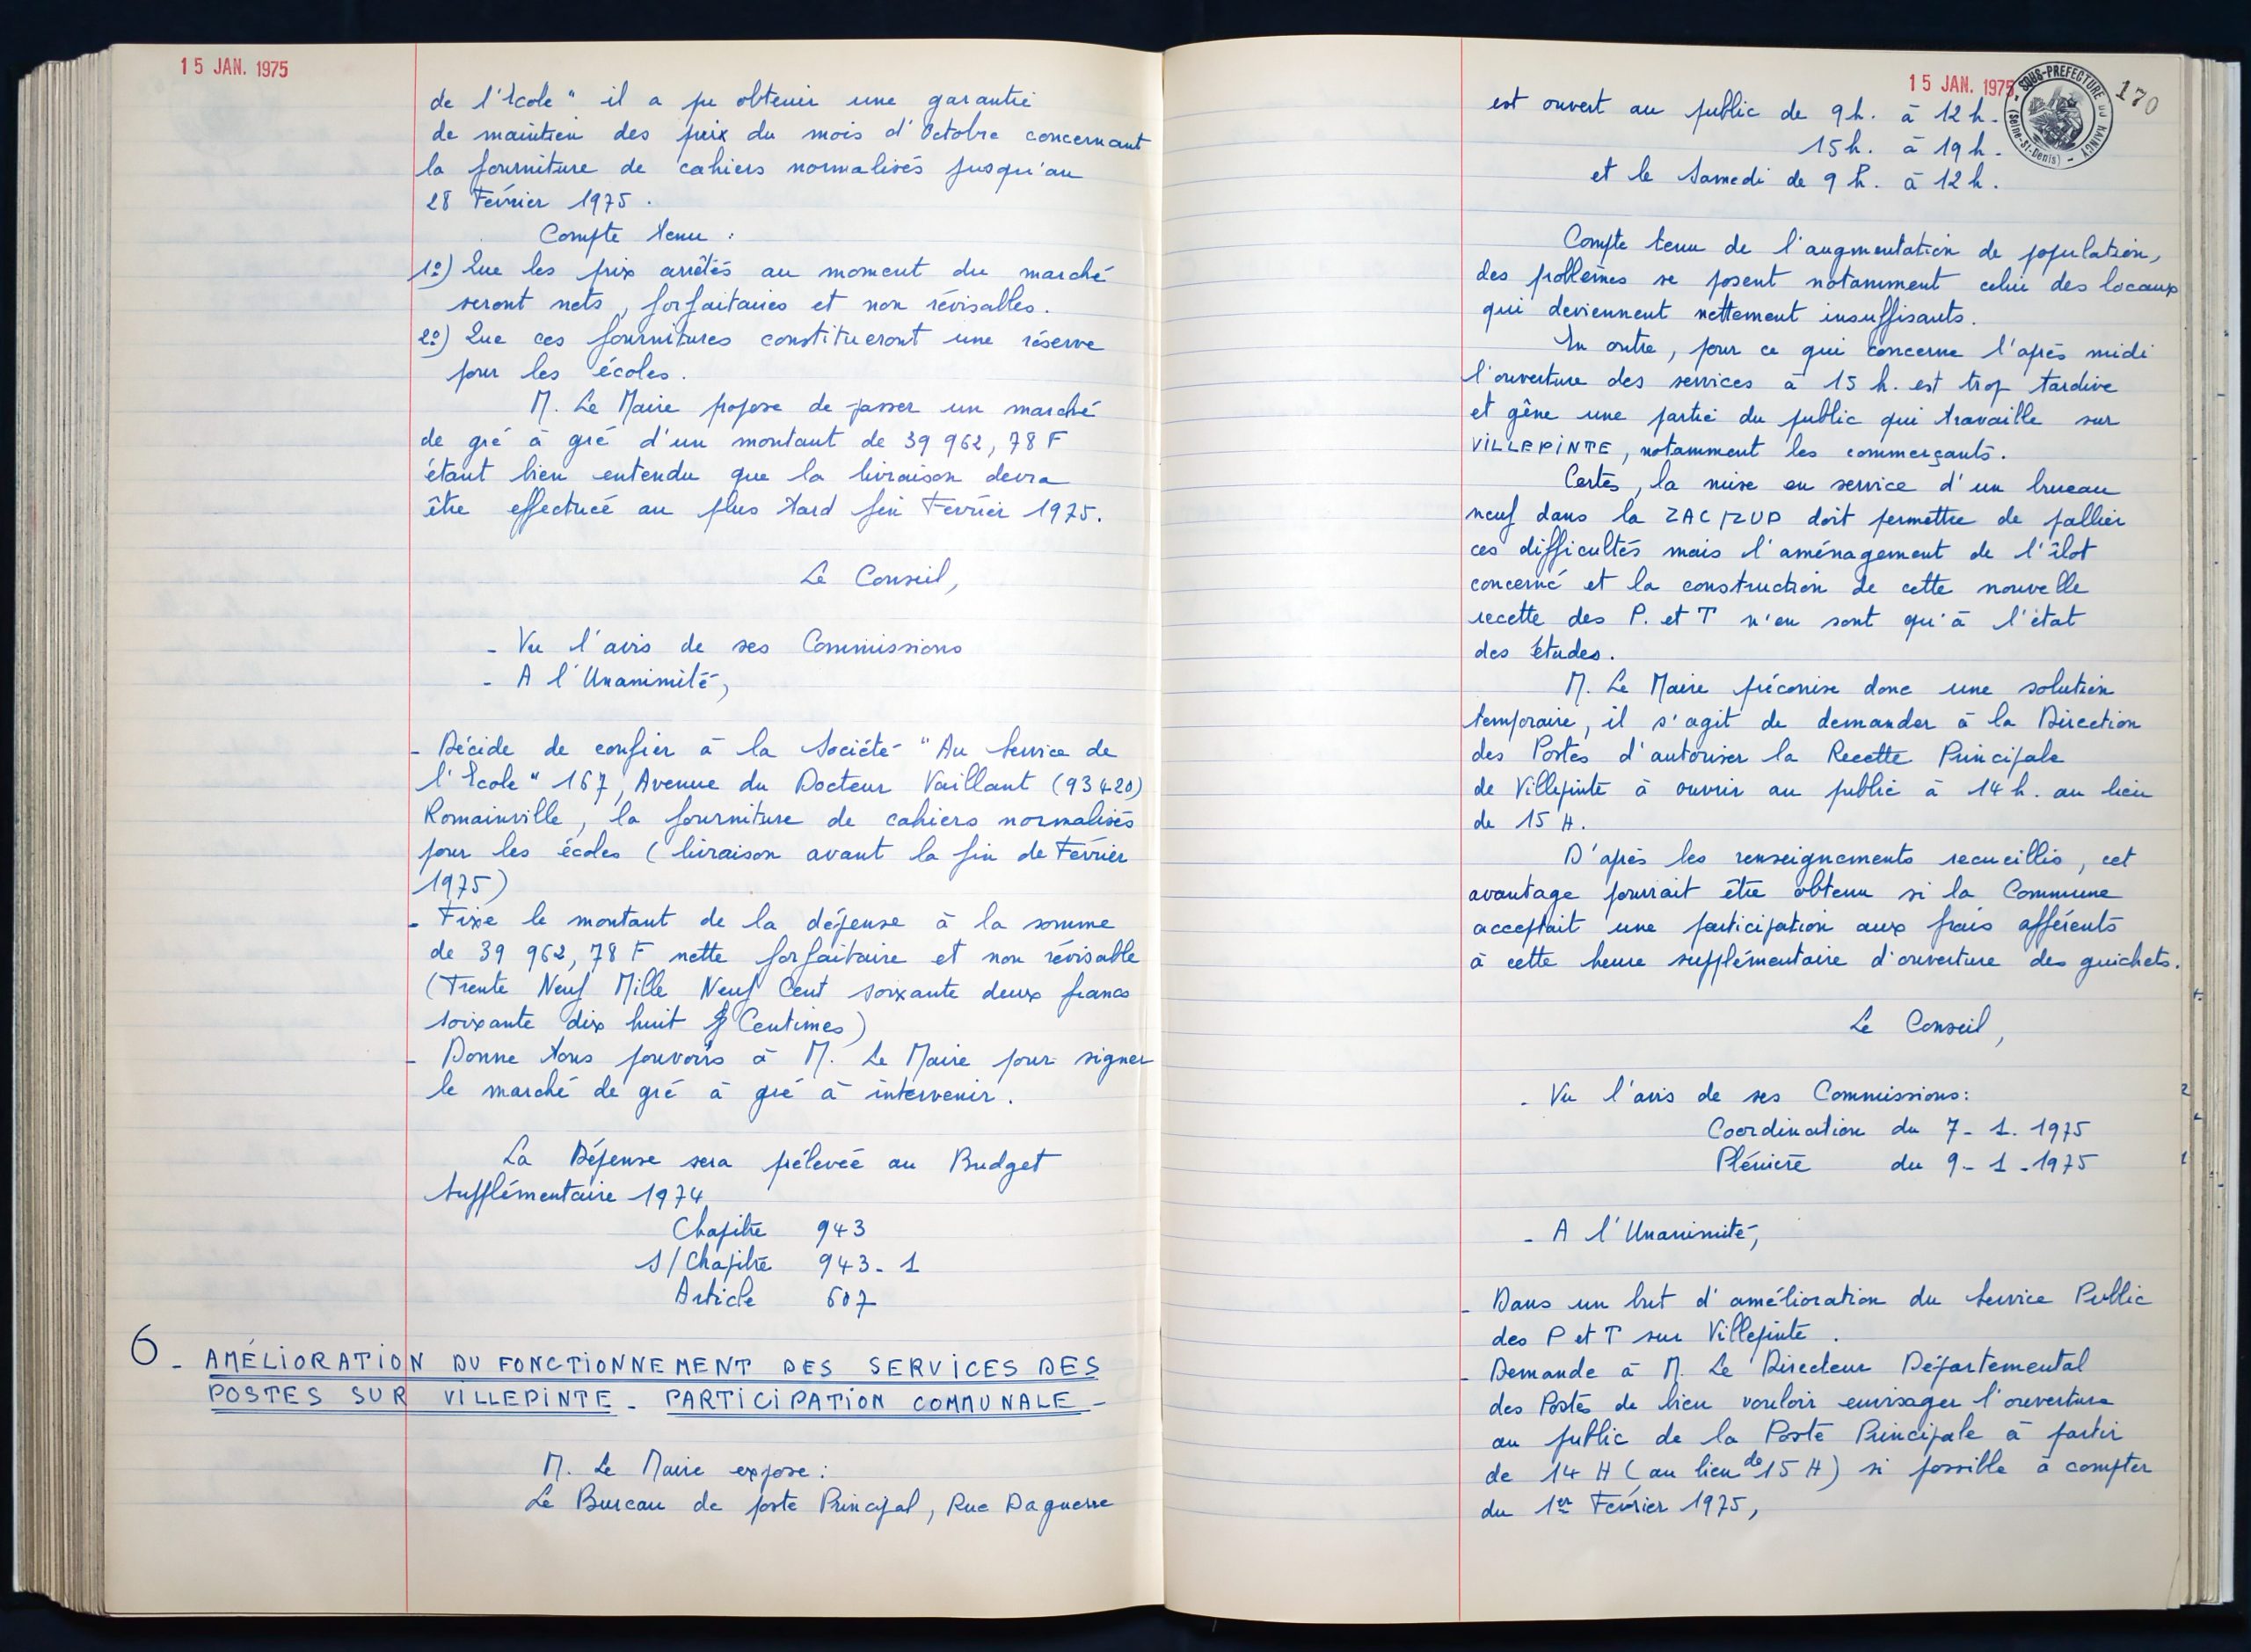 15 JAN. 1975
de l'Ecole" il a pu obtenir une garantie
de maintien des prix du mois d'Octobre concernant
la fourniture de cahiers normalisés jusqu'au
28 Février 1975.
Compte tenu :
1º) Que les prix arrêtés au moment du marché
seront nets, forfaitaires et non révisables.
2º) Que ces fournitures constitueront une réserve
pour les écoles.
M. Le Maire propose de passer un marché
de gré à gré d'un montant de 39 962,78 F
étant bien entendu que la livraison devra
être effectuée au plus tard fin Février 1975.
Le Conseil,
- Vu l'avis de ses Commissions
- A l'Unanimité,
- Décide de confier à la Société "Au Service de
l'Ecole" 167, Avenue du Docteur Vaillant (93420)
Romainville, la fourniture de cahiers normalisés
pour les écoles (livraison avant la fin de Février
1975)
- Fixe le montant de la dépense à la somme
de 39 962,78 F nette forfaitaire et non révisable
(Trente Neuf Mille Neuf Cent soixante deux francs
soixante dix huit Centimes)
- Donne tous pouvoirs à M. Le Maire pour signer
le marché de gré à gré à intervenir.
La Dépense sera prélevée au Budget
Supplémentaire 1974
Chapitre 943
S/Chapitre 943-1
Article 607
6 - AMÉLIORATION DU FONCTIONNEMENT DES SERVICES DES
POSTES SUR VILLEPINTE - PARTICIPATION COMMUNALE -
M. Le Maire expose :
Le Bureau de poste Principal, Rue Daguerre
15 JAN. 1975
SOUS-PREFECTURE DU RAINCY
(Seine-St-Denis)
170
est ouvert au public de 9h. à 12h.
15h. à 19h.
et le Samedi de 9h. à 12h.
Compte tenu de l'augmentation de population,
des problèmes se posent notamment celui des locaux
qui deviennent nettement insuffisants.
En outre, pour ce qui concerne l'après midi
l'ouverture des services à 15 h. est trop tardive
et gêne une partie du public qui travaille sur
VILLEPINTE, notamment les commerçants.
Certes, la mise en service d'un bureau
neuf dans la ZAC/ZUP doit permettre de pallier
ces difficultés mais l'aménagement de l'îlot
concerné et la construction de cette nouvelle
recette des P. et T n'en sont qu'à l'état
des études.
M. Le Maire préconise donc une solution
temporaire, il s'agit de demander à la Direction
des Postes d'autoriser la Recette Principale
de Villepinte à ouvrir au public à 14 h. au lieu
de 15 H.
D'après les renseignements recueillis, cet
avantage pourrait être obtenu si la Commune
acceptait une participation aux frais afférents
à cette heure supplémentaire d'ouverture des guichets.
Le Conseil,
- Vu l'avis de ses Commissions :
Coordination du 7-1.1975
Plénière du 9-1-1975
- A l'Unanimité,
- Dans un but d'amélioration du Service Public
des P et T sur Villepinte.
- Demande à M. Le Directeur Départemental
des Postes de bien vouloir envisager l'ouverture
au public de la Poste Principale à partir
de 14 H (au lieu de 15 H) si possible à compter
du 1er Février 1975,